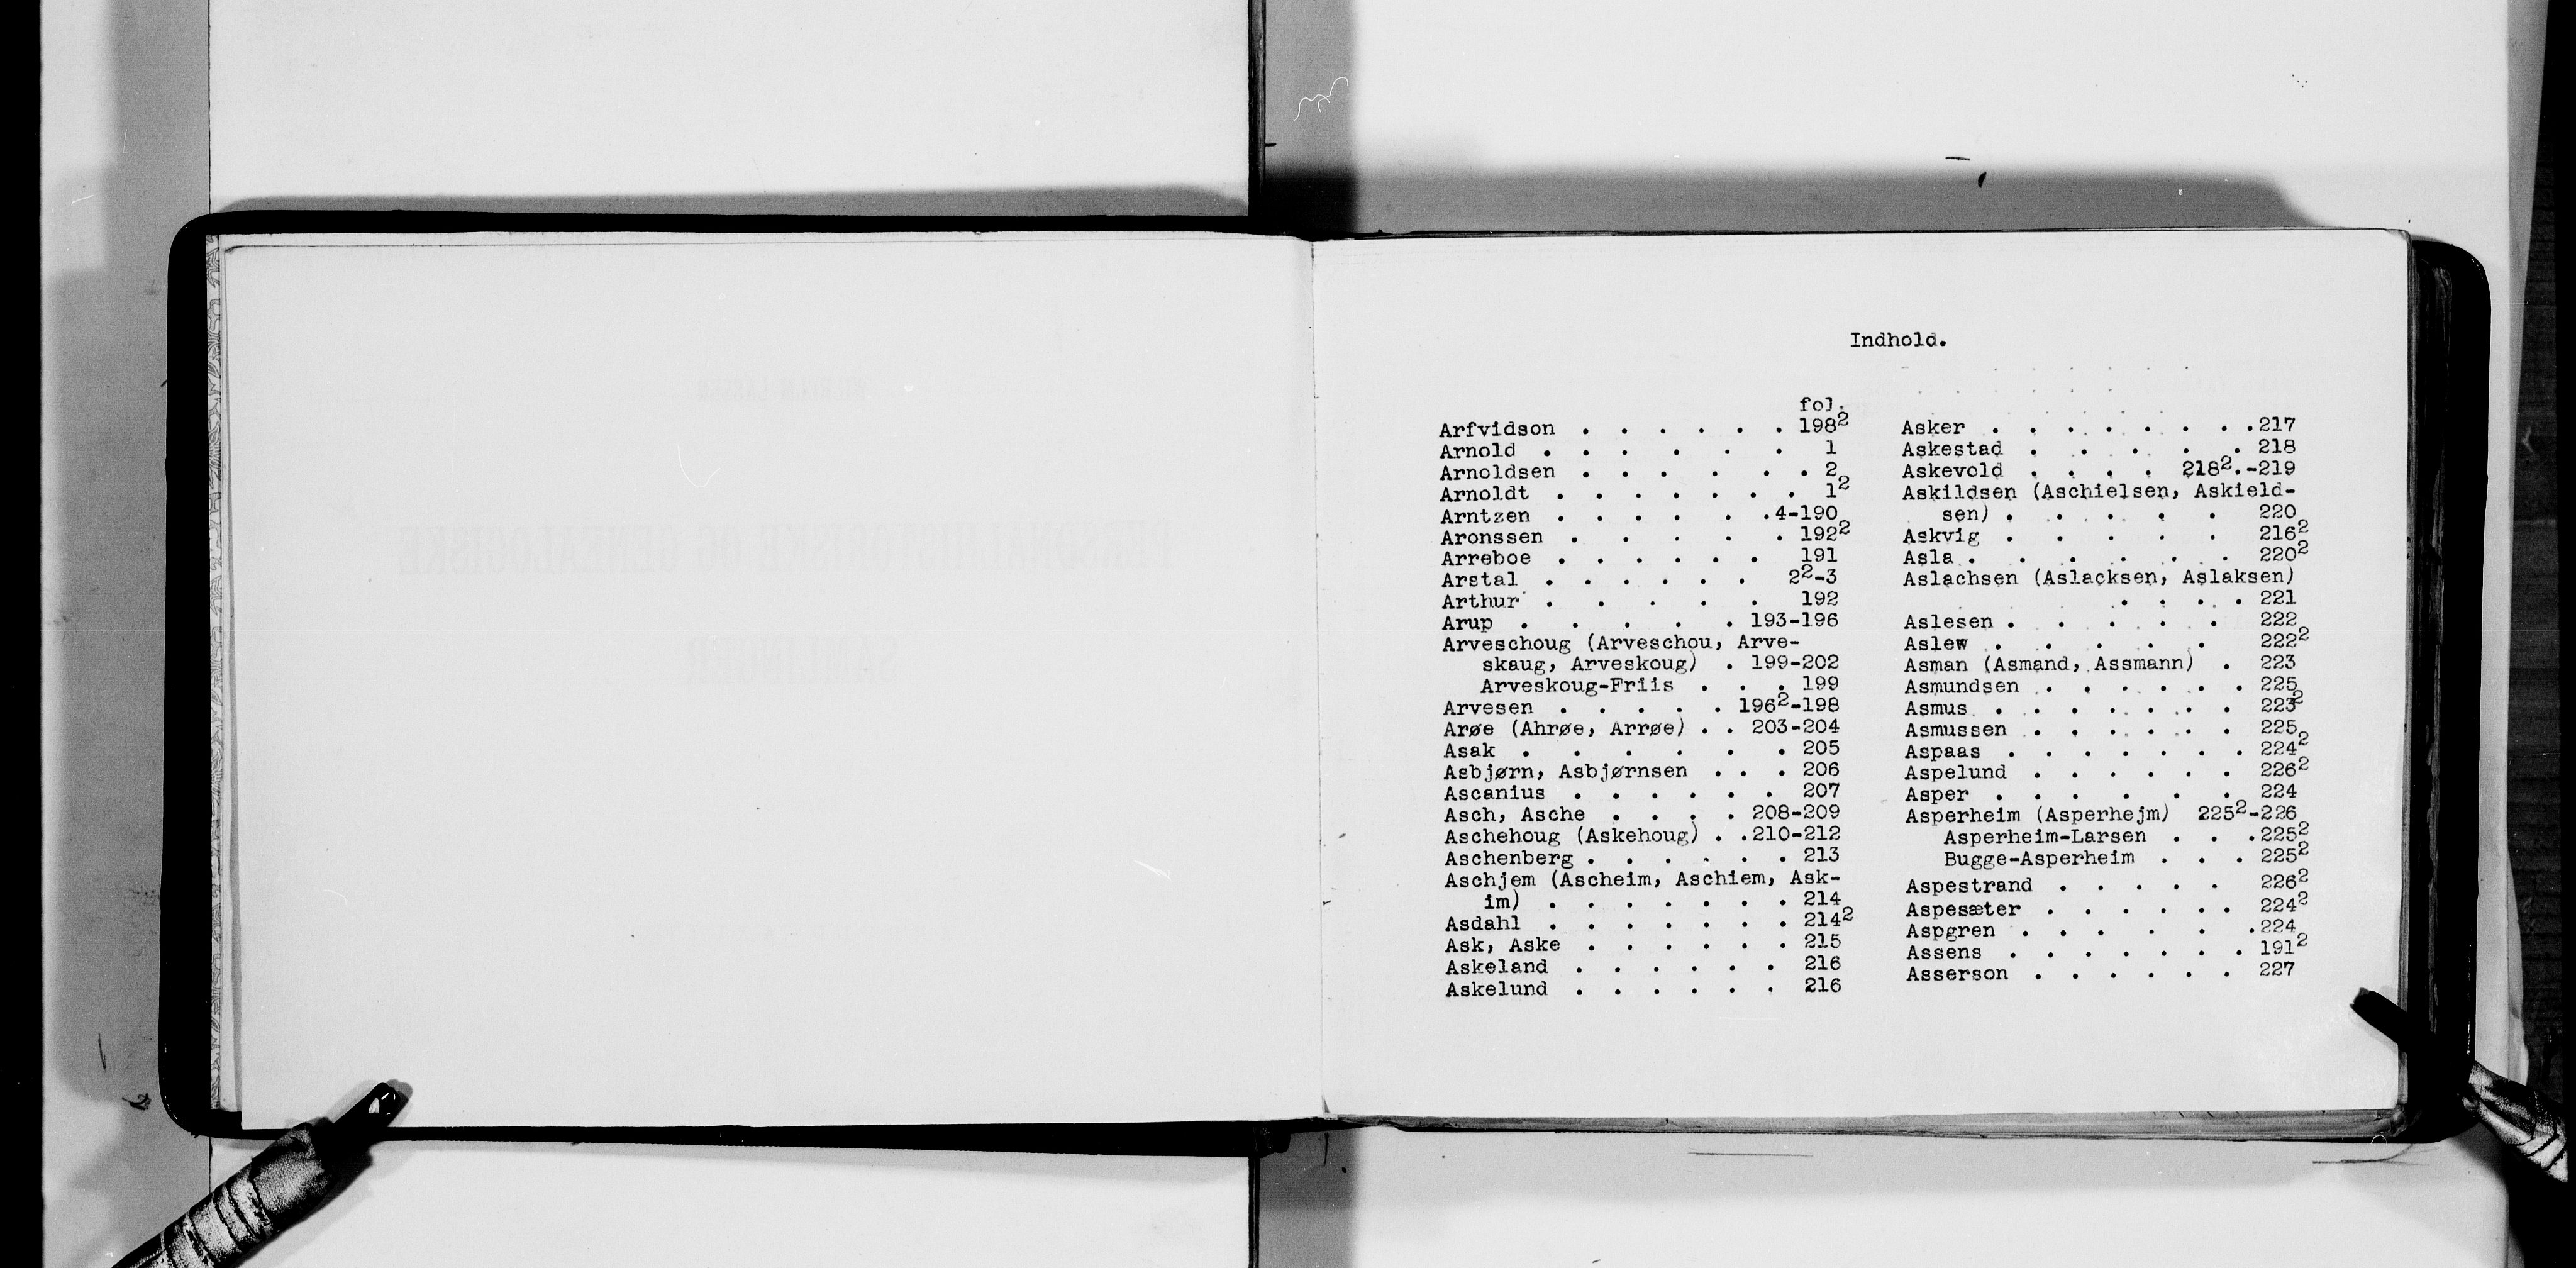 Indhold.
fol.
Arfvidson . . . . . . 198²
Arnold . . . . . . 1
Arnoldsen . . . . . . 2
Arnoldt . . . . . . . 1²
Arntzen . . . . . .4-190
Aronssen . . . . . . 192²
Arreboe . . . . . . 191
Arstal . . . . . . 2²-3
Arthur . . . . . 192
Arup . . . . . . 193-196
Arveschoug (Arveschou, Arve-
skaug, Arveskoug) . 199-202
Arveskoug-Friis . . . 199
Arvesen . . . . . 196²-198
Arøe (Ahrøe, Arrøe) . . 203-204
Asak . . . . . . . 205
Asbjørn, Asbjørnsen . . . 206
Ascanius . . . . . . 207
Asch, Asche . . . . 208-209
Aschehoug (Askehoug) . .210-212
Aschenberg . . . . . . 213
Aschjem (Ascheim, Aschiem, Ask-
im) . . . . . . . 214
Asdahl . . . . . . . 214²
Ask, Aske . . . . . . 215
Askeland . . . . . . 216
Askelund . . . . . . 216
Asker . . . . . . . .217
Askestad . . . . . . 218
Askevold . . . . 218².-219
Askildsen (Aschielsen, Askield-
sen) . . . . . . 220
Askvig . . . . . . 216²
Asla . . . . . . . 220²
Aslachsen (Aslacksen, Aslaksen)
. . . . 221
Aslesen . . . . . . 222
Aslew . . . . . . 222²
Asman (Asmand, Assmann) . 223
Asmundsen . . . . . . 225
Asmus . . . . . . . 223²
Asmussen . . . . . . 225
Aspaas . . . . . . . 224²
Aspelund . . . . . . 226²
Asper . . . . . . . 224
Asperheim (Asperhejm) 225²-226
Asperheim-Larsen . . .225²
Bugge-Asperheim . . . 225²
Aspestrand . . . . . 226²
Aspesæter . . . . . . 224²
Aspgren . . . . . .224
Assens . . . . . . . 191²
Asserson . . . . . . 227